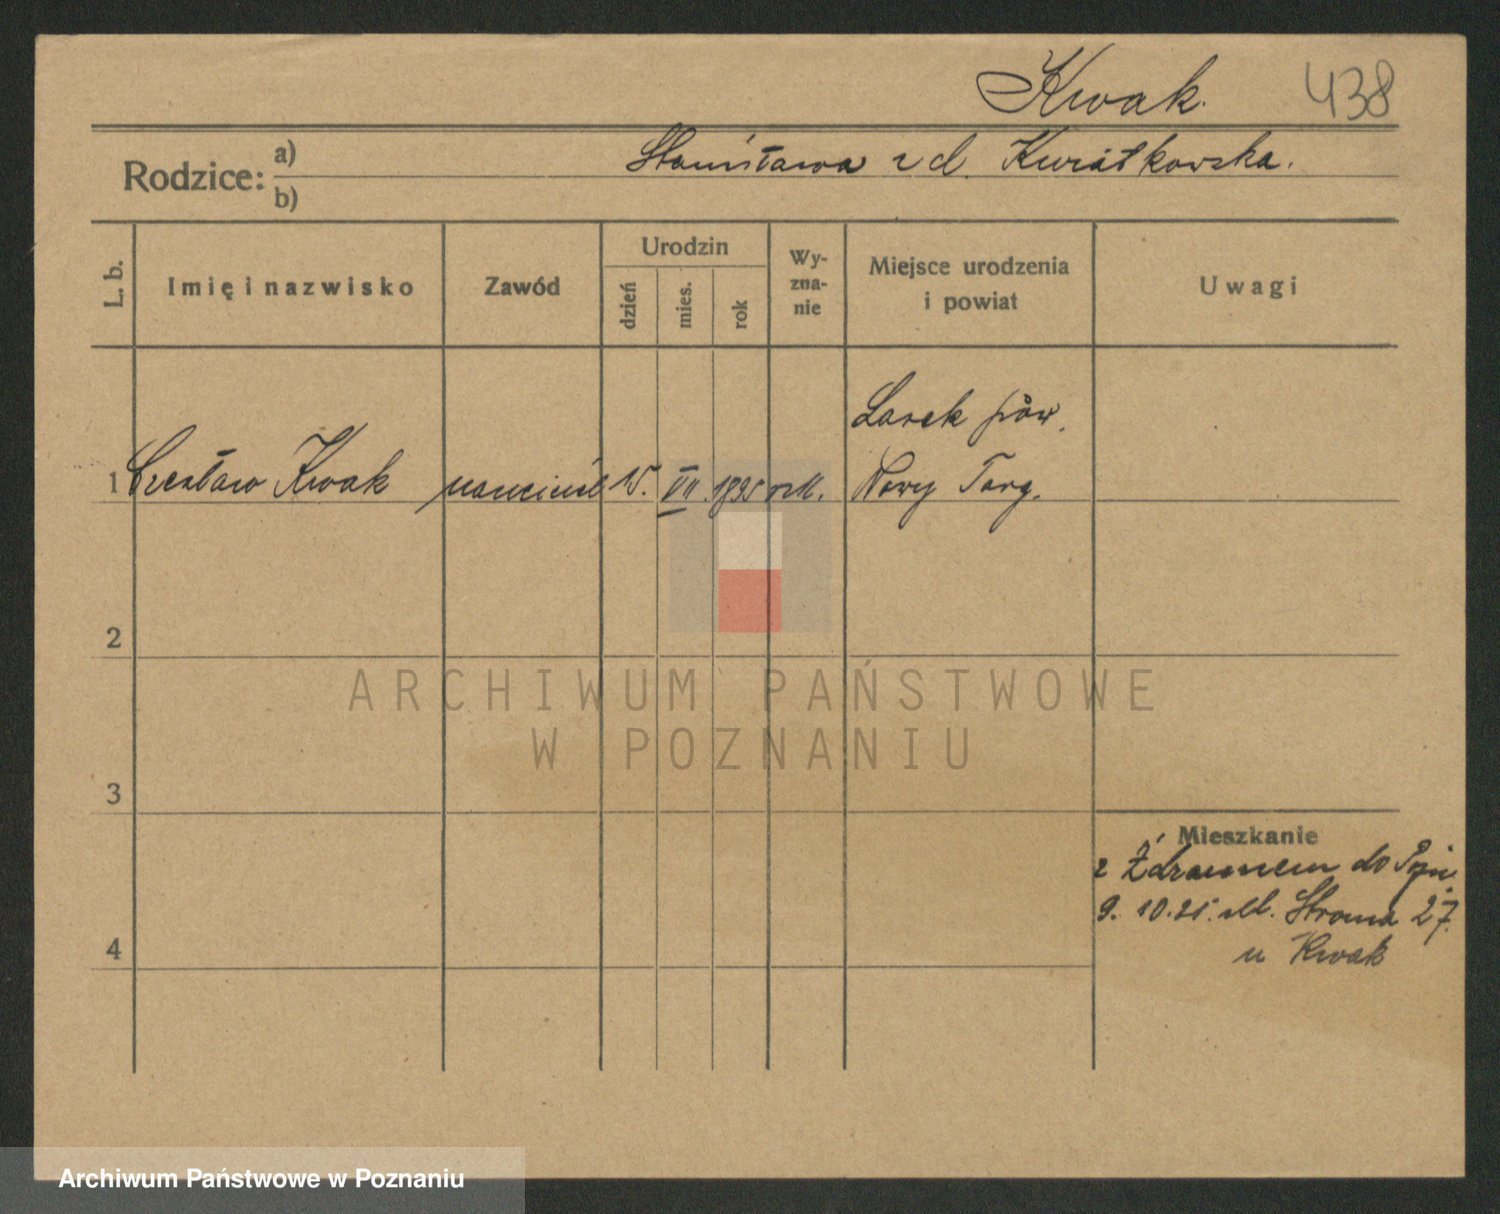 Kwak.
438
Rodzice:
a)
Stanisława z d. Kwiatkowska.
b)
L. b.
Imię i nazwisko
Zawód
Urodzin
dzień
mies.
rok
Wy-
zna-
nie
Miejsce urodzenia
i powiat
Uwagi
1
Czesław Kwak
15. VII. 1895
Lasek pow.
Nowy Targ.
2
3
4
Mieszkanie
z do Pozn.
9. 10. 21. Stroma 27.
u Kwak
ARCHIWUM PAŃSTWOWE
W POZNANIU
Archiwum Państwowe w Poznaniu